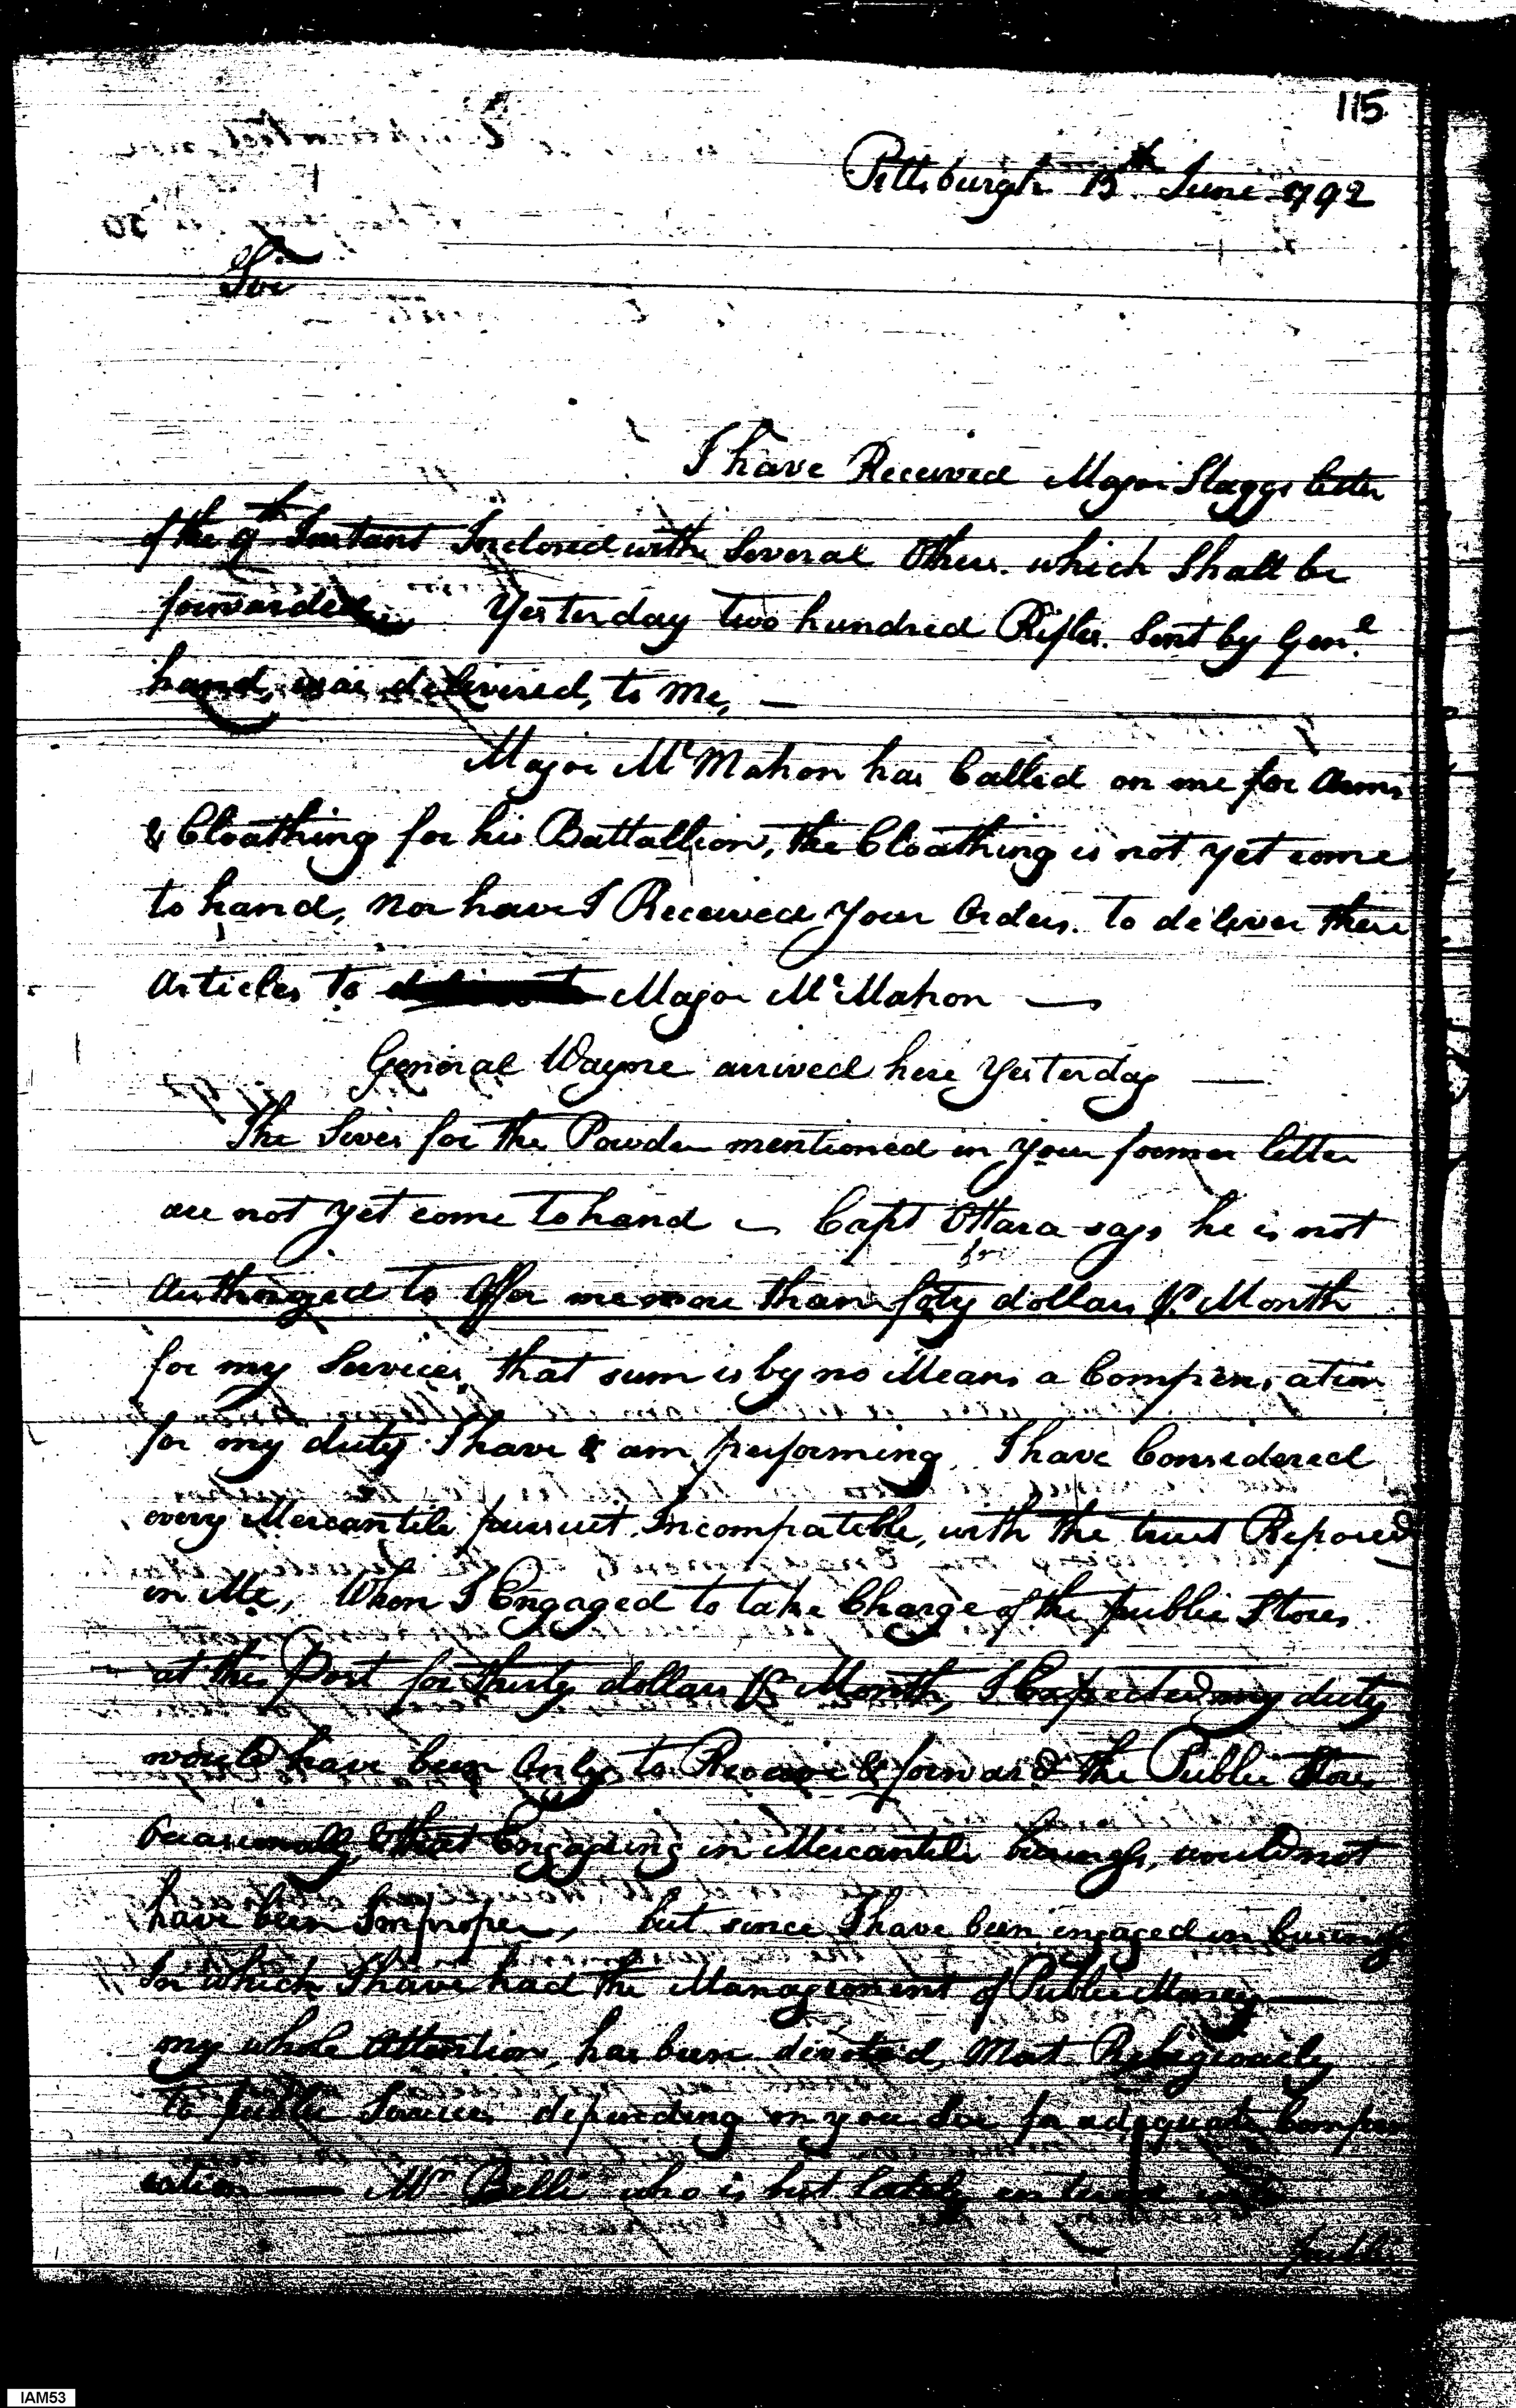 115
Pittsburgh 15th June 1792
Sir
I have Received Major Staggs letter
of the 9th Instant Inclosed with Several Others. which Shall be
forwarded. Yesterday two hundred Rifles. Sent by Genl.
hand, was delivered, to me, —
Major McMahon has Called on me for Arms
& Cloathing for his Battallion, the Cloathing is not yet come
to hand, nor have I Received your Orders. to deliver these
Articles to Major McMahon —
General Wayne arrived here Yesterday —
The Sives for the Powder mentioned in your former letter
are not yet come to hand — Capt OHara says he is not
Authorized to Offer me more than foty dollars pr Month
for my Services, that sum is by no Means a Compensation
for my duty I have & am performing, I have Considered
every Mercantile pursuit Incompatible, with the trust Reposed
in Me, When I Engaged to take Charge of the public Stores
at this Post for thirty dollars pr Month, I Expected my duty
would have been Only to Receive & forward the Public Stores
Occasionally, & that Engaging in Mercantile business, would not
have been Improper, but since I have been engaged in business
In which I have had the Management of Public Money —
my whole Attention, has been devoted, Most Religiously
to public Services depending on you Sir for adequate Compen
sation — Mr Belli who is but lately entered into
public
IAM53